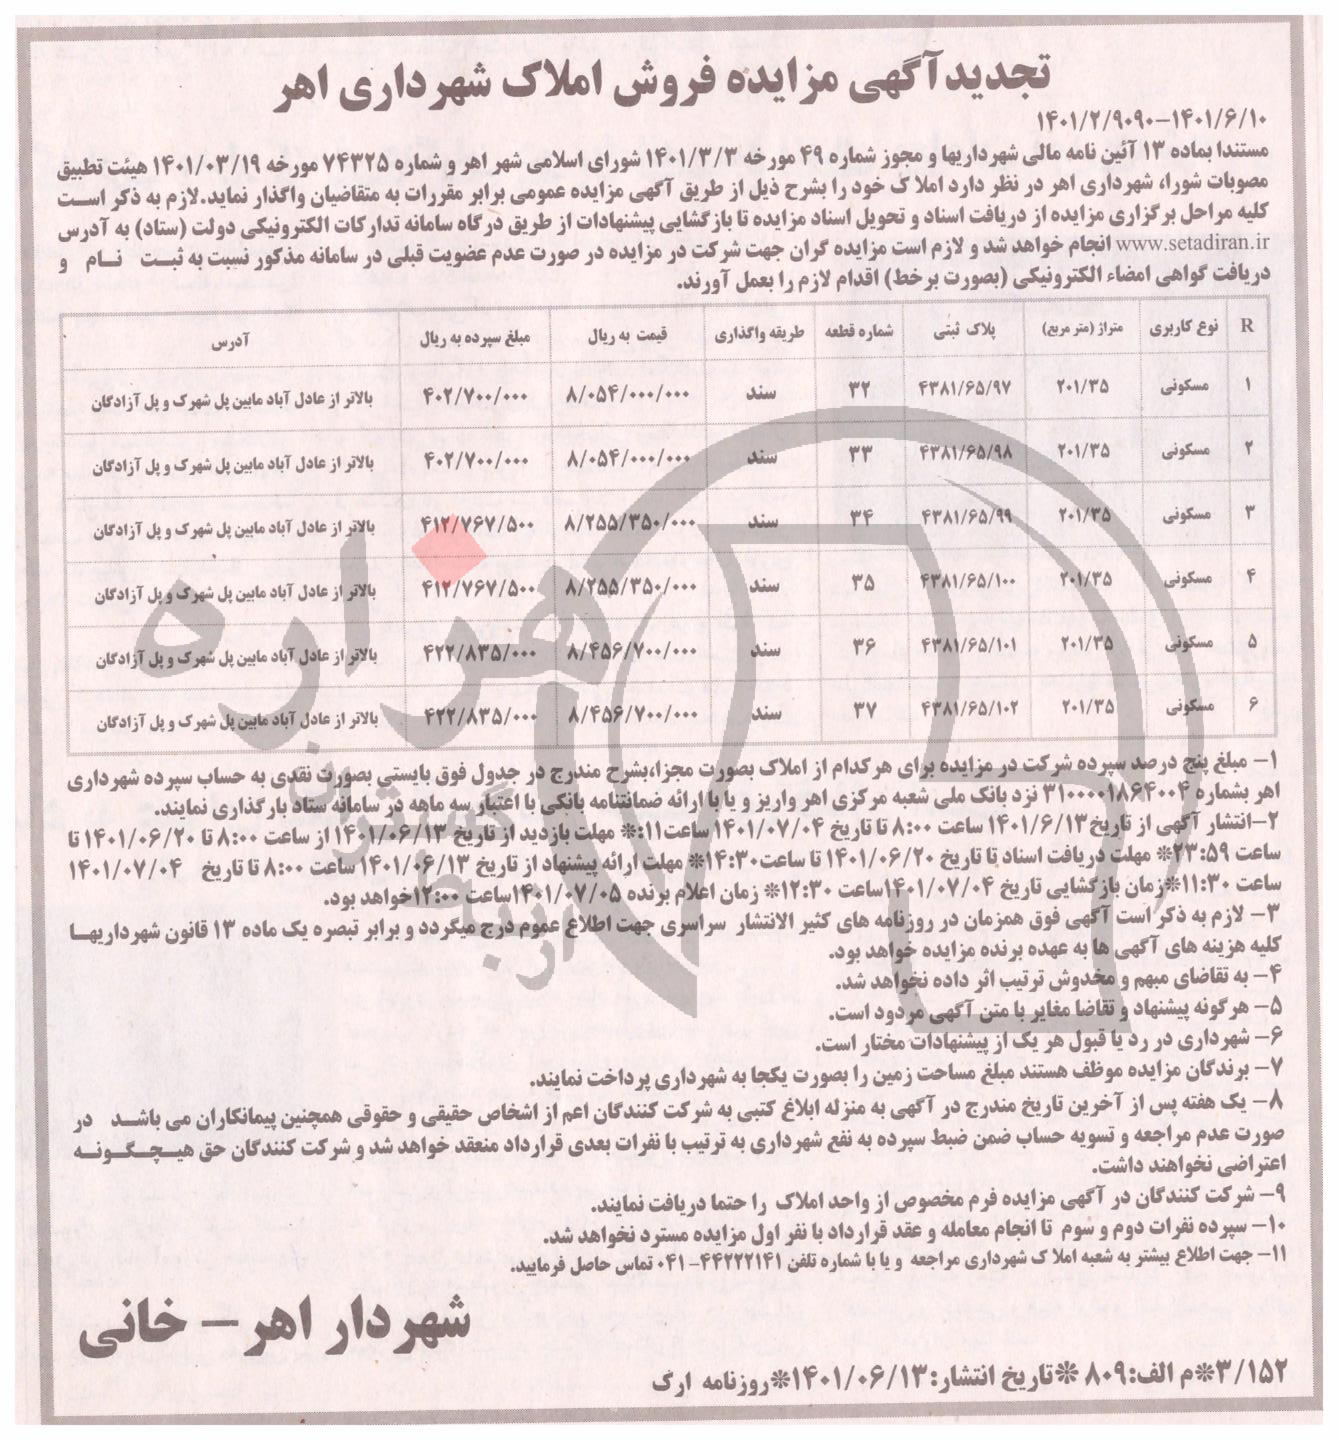 تجدید آگهی مزایده فروش املاک شهرداری اهر
۱۴۰۱/۲/۹۰۹۰-۱۴۰۱/۶/۱۰
مستندا بماده ۱۳ آئین نامه مالی شهرداریها و مجوز شماره ۴۹ مورخه ۱۴۰۱/۳/۳ شورای اسلامی شهر اهر و شماره ۷۴۳۲۵ مورخه ۱۴۰۱/۰۳/۱۹ هیئت تطبیق
مصوبات شورا، شهرداری اهر در نظر دارد املاک خود را بشرح ذیل از طریق آگهی مزایده عمومی برابر مقررات به متقاضیان واگذار نماید.لازم به ذکر است
کلیه مراحل برگزاری مزایده از دریافت اسناد و تحویل اسناد مزایده تا بازگشایی پیشنهادات از طریق درگاه سامانه تدارکات الکترونیکی دولت (ستاد) به آدرس
www.setadiran.ir انجام خواهد شد و لازم است مزایده گران جهت شرکت در مزایده در صورت عدم عضویت قبلی در سامانه مذکور نسبت به ثبت نام و
دریافت گواهی امضاء الکترونیکی (بصورت برخط) اقدام لازم را بعمل آورند.
R نوع کاربری متراژ (متر مربع) پلاک ثبتی شماره قطعه طریقه واگذاری قیمت به ریال مبلغ سپرده به ریال آدرس
۱ مسکونی ۲۰۱/۳۵ ۴۳۸۱/۶۵/۹۷ ۳۲ سند ۸/۰۵۴/۰۰۰/۰۰۰ ۴۰۲/۷۰۰/۰۰۰ بالاتر از عادل آباد مابین پل شهرک و پل آزادگان
۲ مسکونی ۲۰۱/۳۵ ۴۳۸۱/۶۵/۹۸ ۳۳ سند ۸/۰۵۴/۰۰۰/۰۰۰ ۴۰۲/۷۰۰/۰۰۰ بالاتر از عادل آباد مابین پل شهرک و پل آزادگان
۳ مسکونی ۲۰۱/۳۵ ۴۳۸۱/۶۵/۹۹ ۳۴ سند ۸/۲۵۵/۳۵۰/۰۰۰ ۴۱۲/۷۶۷/۵۰۰ بالاتر از عادل آباد مابین پل شهرک و پل آزادگان
۴ مسکونی ۲۰۱/۳۵ ۴۳۸۱/۶۵/۱۰۰ ۳۵ سند ۸/۲۵۵/۳۵۰/۰۰۰ ۴۱۲/۷۶۷/۵۰۰ بالاتر از عادل آباد مابین پل شهرک و پل آزادگان
۵ مسکونی ۲۰۱/۳۵ ۴۳۸۱/۶۵/۱۰۱ ۳۶ سند ۸/۴۵۶/۷۰۰/۰۰۰ ۴۲۲/۸۳۵/۰۰۰ بالاتر از عادل آباد مابین پل شهرک و پل آزادگان
۶ مسکونی ۲۰۱/۳۵ ۴۳۸۱/۶۵/۱۰۲ ۳۷ سند ۸/۴۵۶/۷۰۰/۰۰۰ ۴۲۲/۸۳۵/۰۰۰ بالاتر از عادل آباد مابین پل شهرک و پل آزادگان
هزاره
۱- مبلغ پنج درصد سپرده شرکت در مزایده برای هر کدام از املاک بصورت مجزا،بشرح مندرج در جدول فوق بایستی بصورت نقدی به حساب سپرده شهرداری
اهر بشماره ۳۱۰۰۰۰۱۸۶۴۰۰۴ نزد بانک ملی شعبه مرکزی اهر واریز و یا با ارائه ضمانتنامه بانکی با اعتبار سه ماهه در سامانه ستاد بارگذاری نمایند.
۲-انتشار آگهی از تاریخ۱۴۰۱/۶/۱۳ ساعت ۸:۰۰ تا تاریخ ۱۴۰۱/۰۷/۰۴ ساعت۱۱:* مهلت بازدید از تاریخ ۱۴۰۱/۰۶/۱۳ از ساعت ۸:۰۰ تا ۱۴۰۱/۰۶/۲۰ تا
ساعت ۲۳:۵۹* مهلت دریافت اسناد تا تاریخ ۱۴۰۱/۰۶/۲۰ تا ساعت۱۴:۳۰* مهلت ارائه پیشنهاد از تاریخ ۱۴۰۱/۰۶/۱۳ ساعت ۸:۰۰ تا تاریخ ۱۴۰۱/۰۷/۰۴
ساعت ۱۱:۳۰*زمان بازگشایی تاریخ ۱۴۰۱/۰۷/۰۴ساعت ۱۲:۳۰* زمان اعلام برنده ۱۴۰۱/۰۷/۰۵ساعت ۱۲:۰۰خواهد بود.
۳- لازم به ذکر است آگهی فوق همزمان در روزنامه های کثیر الانتشار سراسری جهت اطلاع عموم درج میگردد و برابر تبصره یک ماده ۱۳ قانون شهرداریها
کلیه هزینه های آگهی ها به عهده برنده مزایده خواهد بود.
۴- به تقاضای مبهم و مخدوش ترتیب اثر داده نخواهد شد.
۵- هرگونه پیشنهاد و تقاضا مغایر با متن آگهی مردود است.
۶- شهرداری در رد یا قبول هر یک از پیشنهادات مختار است.
۷- برندگان مزایده موظف هستند مبلغ مساحت زمین را بصورت یکجا به شهرداری پرداخت نمایند.
۸- یک هفته پس از آخرین تاریخ مندرج در آگهی به منزله ابلاغ کتبی به شرکت کنندگان اعم از اشخاص حقیقی و حقوقی همچنین پیمانکاران می باشد در
صورت عدم مراجعه و تسویه حساب ضمن ضبط سپرده به نفع شهرداری به ترتیب با نفرات بعدی قرارداد منعقد خواهد شد و شرکت کنندگان حق هیچگونه
اعتراضی نخواهند داشت.
۹- شرکت کنندگان در آگهی مزایده فرم مخصوص از واحد املاک را حتما دریافت نمایند.
۱۰- سپرده نفرات دوم و سوم تا انجام معامله و عقد قرارداد با نفر اول مزایده مسترد نخواهد شد.
۱۱- جهت اطلاع بیشتر به شعبه املاک شهرداری مراجعه و یا با شماره تلفن ۴۴۲۲۲۱۴۱-۰۴۱ تماس حاصل فرمایید.
شهردار اهر – خانی
۳/۱۵۲*م الف:۸۰۹ *تاریخ انتشار:۱۴۰۱/۰۶/۱۳*روزنامه ارگ